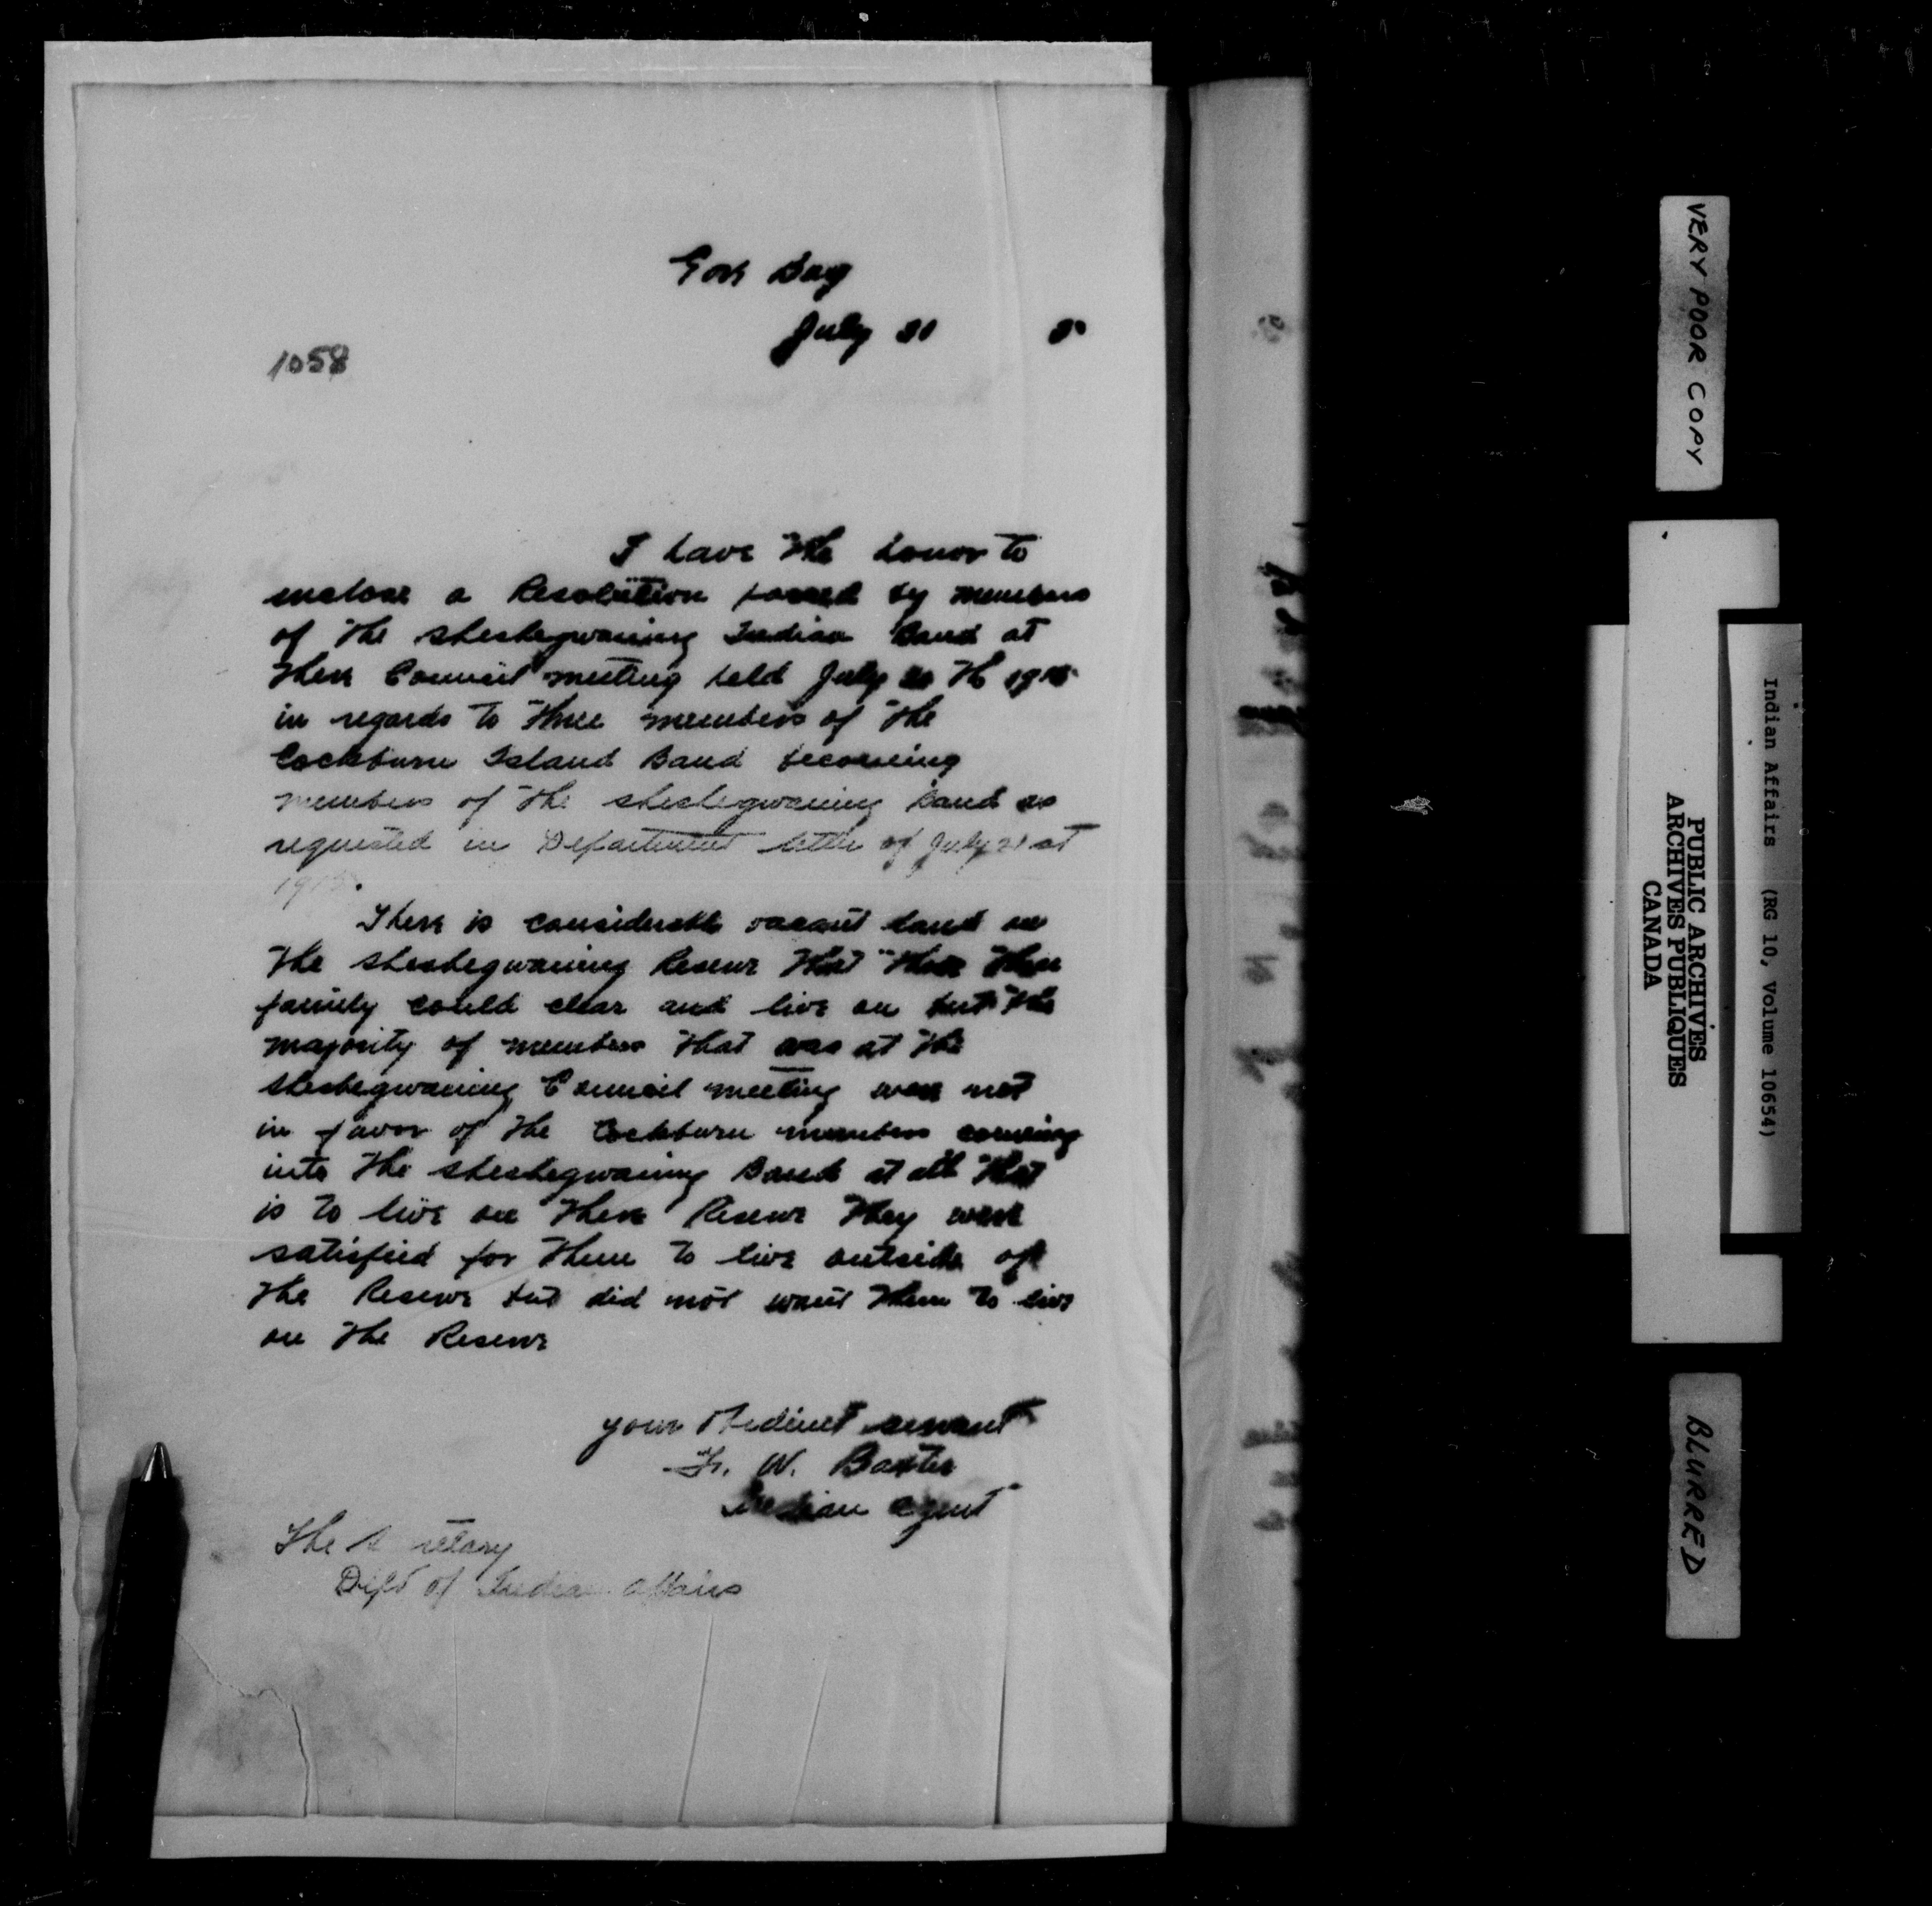 Gore Bay
July 31
1058
I have the honor to
enclose a Resolution passed by members
of the sheshegwaning Indian Band at
their Council meeting held July th 1915
in regards to three members of the
Cockburn Island Band becoming
members of the sheshegwaning Band as
requested in Department letter of July 21st
There is considerable vacant land on
the sheshegwaning Reserve that
family could clear and live on but the
majority of members that was at the
sheshegwaning Council meeting were not
in favor of the Cockburn members coming
into the sheshegwaning Band at all that
is to live on their Reserve They were
satisfied for them to live outside of
the Reserve but did not want them to live
on the Reserve
your Obedient servant
W. Baxter
Indian agent
The
Dept of Indian affairs
VERY POOR COPY
Indian Affairs (RG 10, Volume 10654)
PUBLIC ARCHIVES
ARCHIVES PUBLIQUES
CANADA
BLURRED